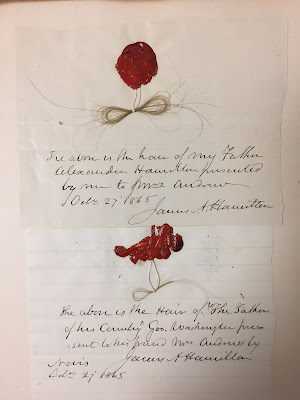 The above is the hair of my Father
Alexander Hamilton presented
by me to Mrs Andrew
Octr 27 1865
James A. Hamilton
The above is the Hair of The Father
of his Country Gen Washington pres
sent to his friend Mrs Andrew by
James A Hamilton
Nevis
Octr 27 1865